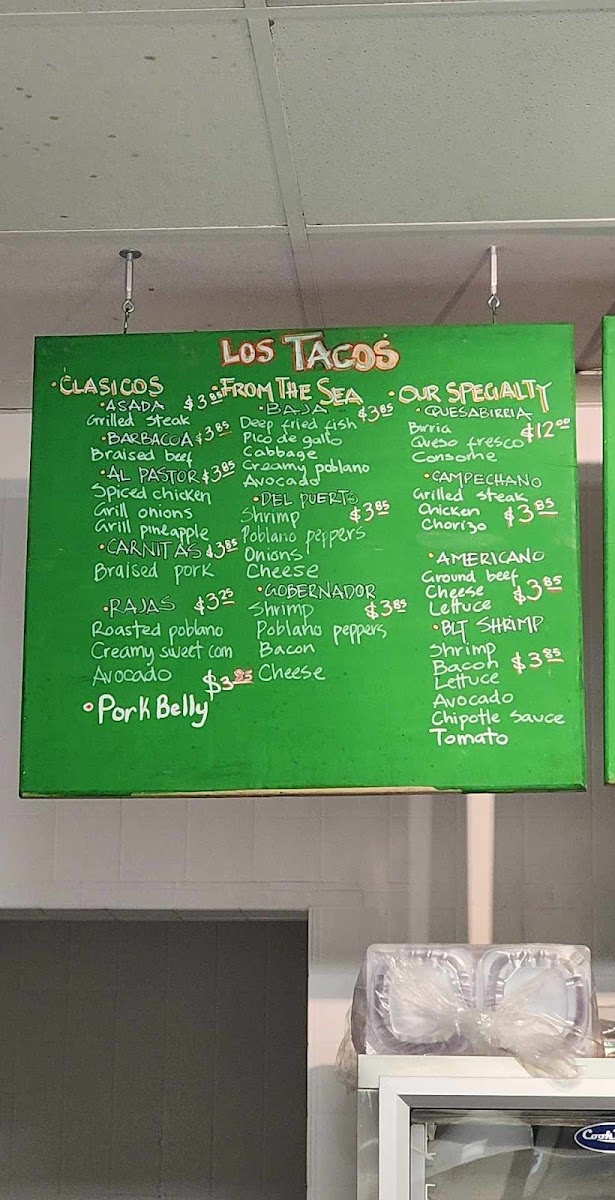 LOS TACOS
•CLASICOS
•ASADA $3.85
Grilled steak
•BARBACOA $3.85
Braised beef
•AL PASTOR $3.85
Spiced chicken
Grill onions
Grill pineapple
•CARNITAS $3.85
Braised pork
•RAJAS $3.25
Roasted poblano
Creamy sweet corn
Avocado
$3.85
•Pork Belly
•FROM THE SEA
•BAJA $3.85
Deep fried fish
Pico de gallo
Cabbage
Creamy poblano
Avocado
•DEL PUERTO
Shrimp $3.85
Poblano peppers
Onions
Cheese
•GOBERNADOR
Shrimp $3.85
Poblano peppers
Bacon
Cheese
•OUR SPECIALTY
•QUESABIRRIA
Burria $12.00
Queso fresco
Consome
•CAMPECHANO
Grilled steak
Chicken $3.85
Chorizo
•AMERICANO
Ground beef
Cheese $3.85
Lettuce
•BLT SHRIMP
Shrimp
Bacon $3.85
Lettuce
Avocado
Chipotle Sauce
Tomato